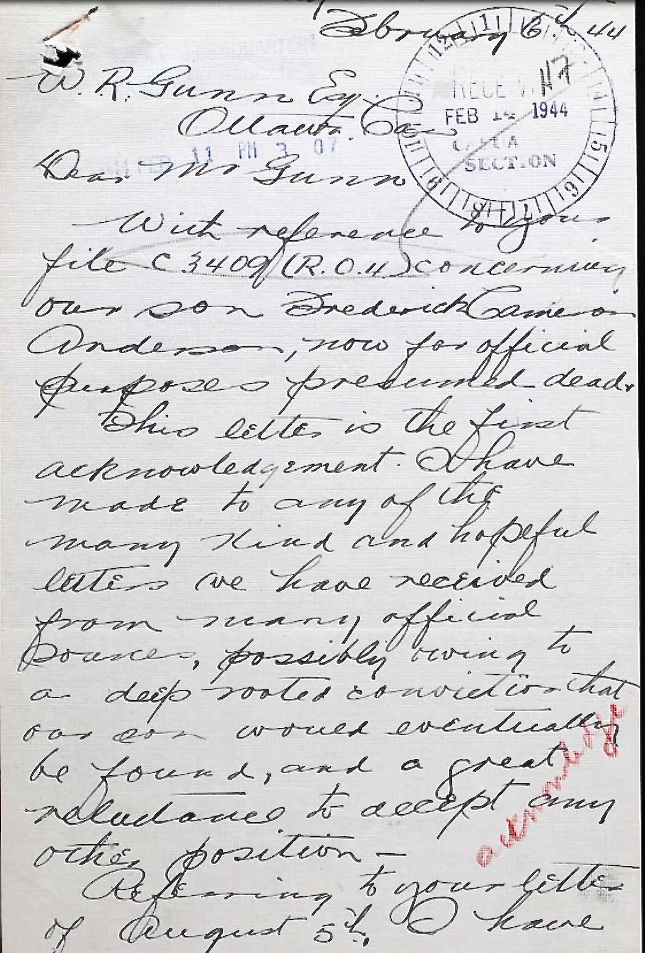 February 6th 44
W. R. Gunn Esq.
Ottawa. Can
Dear Mr Gunn
With reference to your
file C3409 (R.O.4) concerning
our son Frederick Cameron
Anderson, now for official
purposes presumed dead.
This letter is the first
acknowledgement. I have
made to any of the
many kind and hopeful
letters we have received
from many official
sources, possibly owing to
a deep rooted conviction that
our son would eventually
be found, and a great
reluctance to accept any
other position —
Referring to your letter
of August 5th, I have
FEB 14 1944
SECTION
FEB 11 PM 3 07
acknowledge